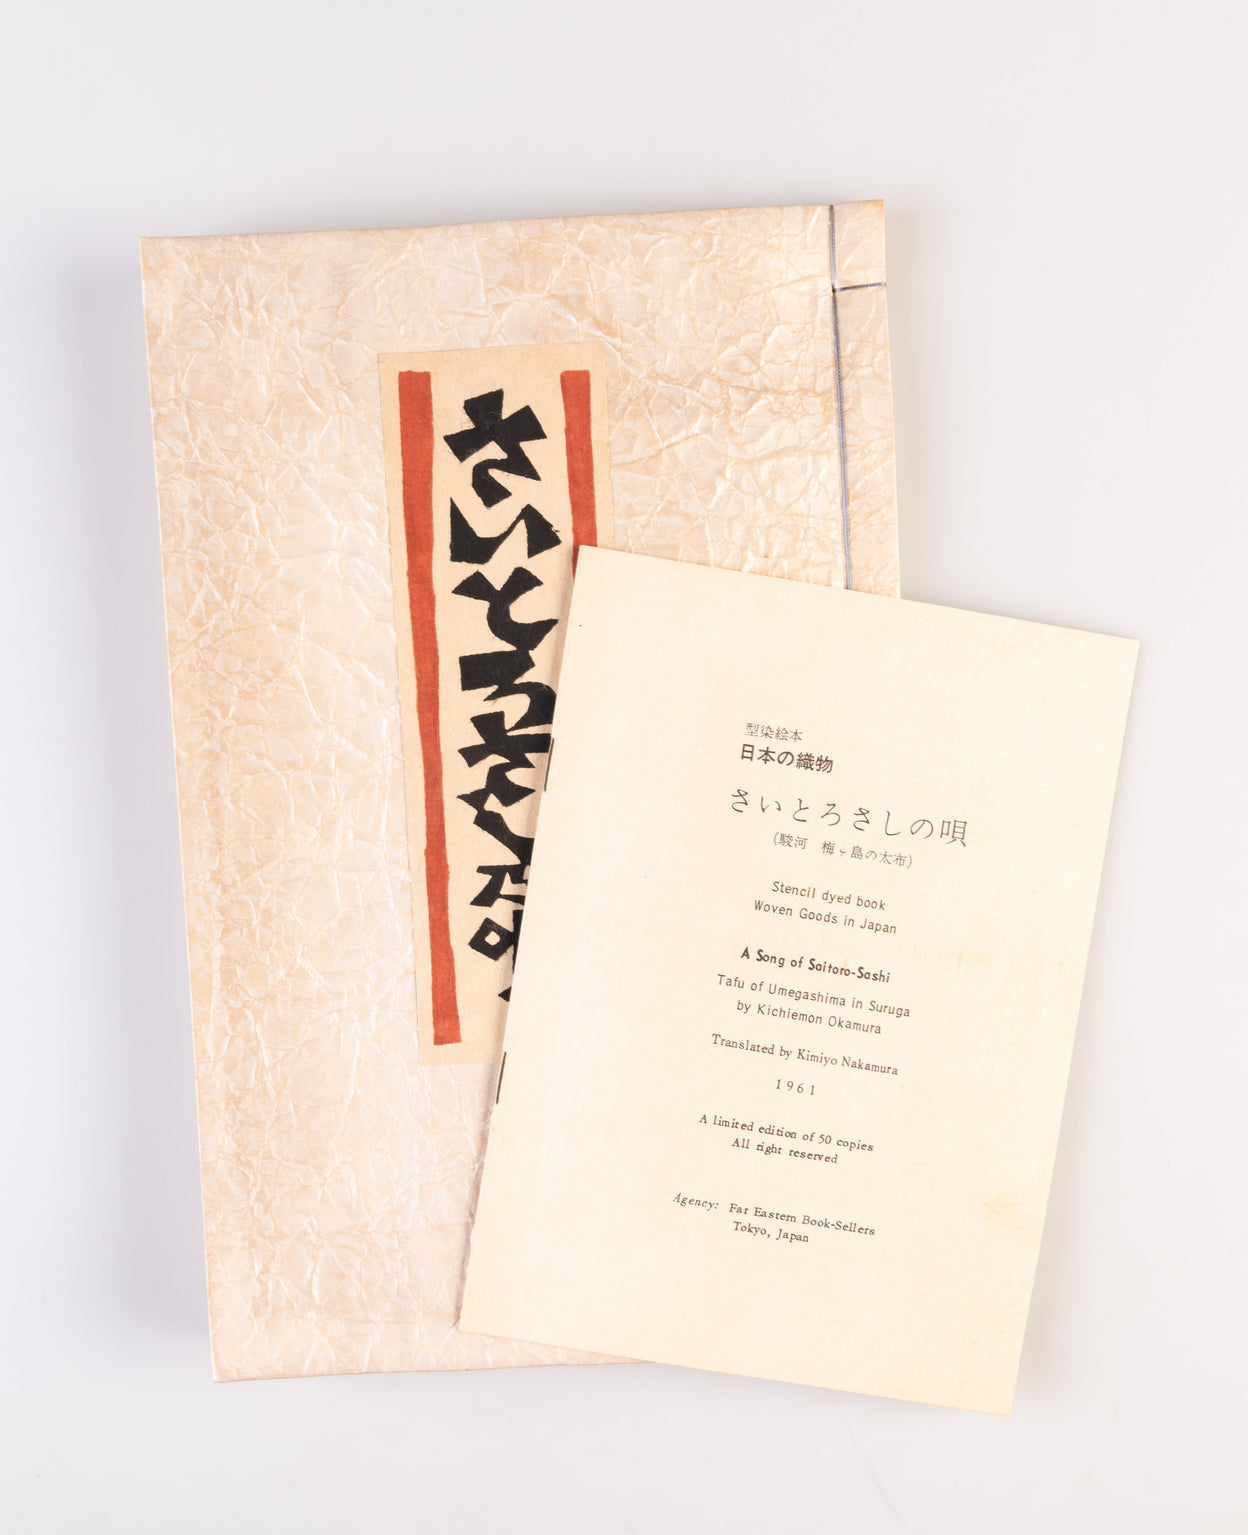 さいとろさしの
型染絵本
日本の織物
さいとろさしの唄
(駿河 梅ヶ島の太布)
Stencil dyed book
Woven Goods in Japan
A Song of Saitoro-Sashi
Tafu of Umegashima in Suruga
by Kichiemon Okamura
Translated by Kimiyo Nakamura
1961
A limited edition of 50 copies
All right reserved
Agency: Far Eastern Book-Sellers
Tokyo, Japan